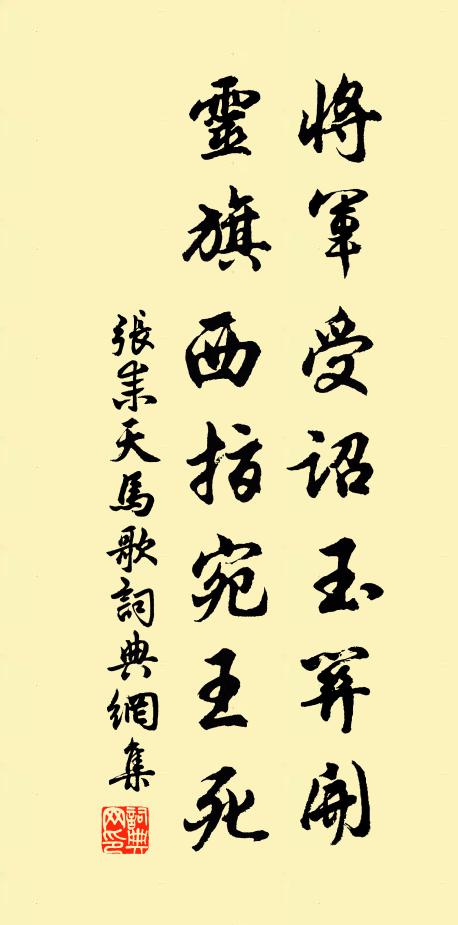 將軍受詔玉關開
靈旗西指宛王死
張耒天馬歌詞典網集
詞典網印